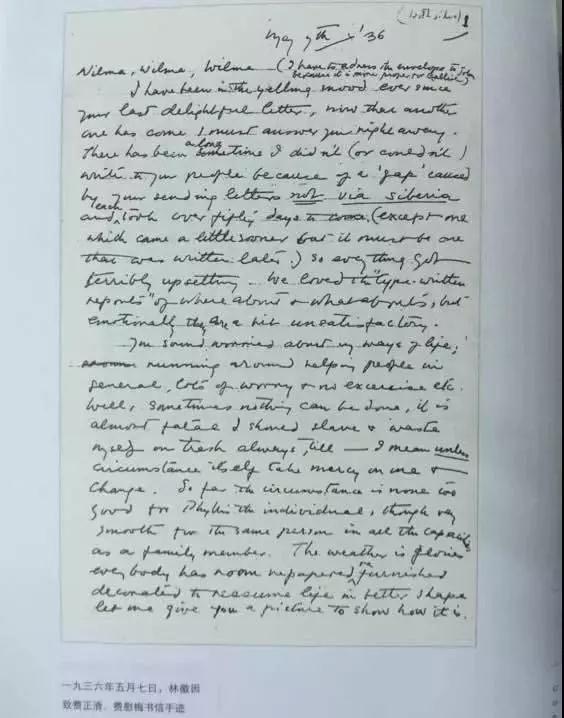 1
May 7th '36
Wilma, Wilma, Wilma (I have to adress the envelope to John
because it is more proper or
I have been in the yelling mood ever since
your last delightful letter, now that another
one has come I must answer you right away.
There has been a long sometime I did n't (or could n't)
write to you people because of a 'gap' caused
by your sending letters not via Siberia
and each took over fifty days to come, (except one
which came a little sooner but it must be one
that was written later.) so everything got
terribly upsetting. We loved the "type-written
reports" of where about or what abouts, but
emotionally they are a bit unsatisfactory.
You sound worried about my ways of life,
running around helping people in
general, lots of worry & no excercise etc.
Well, sometimes nothing can be done, it is
almost fatal I should slave & waste
myself on trash always, till — I mean unless
circumstance itself take mercy on me &
change. So far the circumstance is none too
good for Phyllis the individual, though very
smooth for the same person in all the capacities
as a family member. The weather is glorious
everybody has room repapered, refurnished
decorated to reassume life in better shape
let me give you a picture to show how it is.
一九三六年五月七日，林徽因
致费正清、费慰梅书信手迹